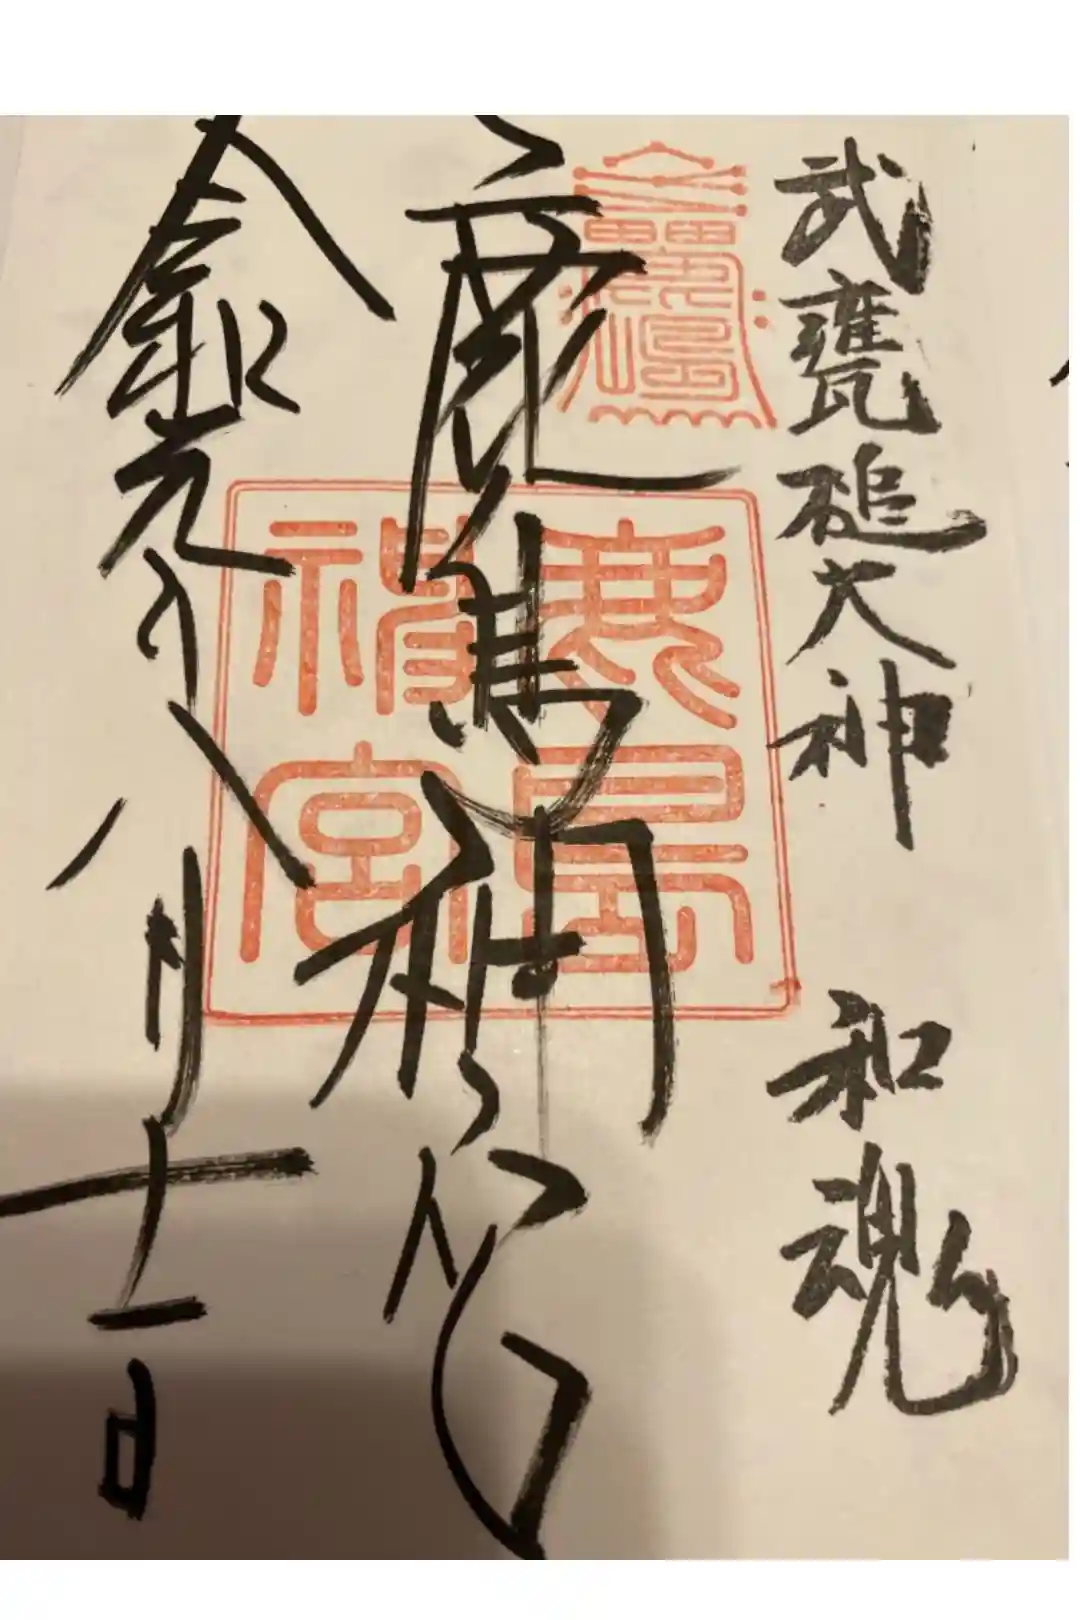 武甕槌大神 和魂
鹿島神宮
令和元年八月十一日
鹿島
神宮